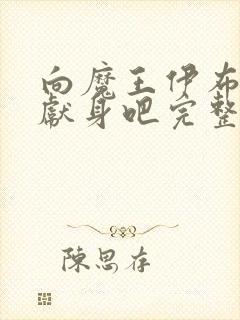 向魔王伊布
獻身吧完整
陳思存